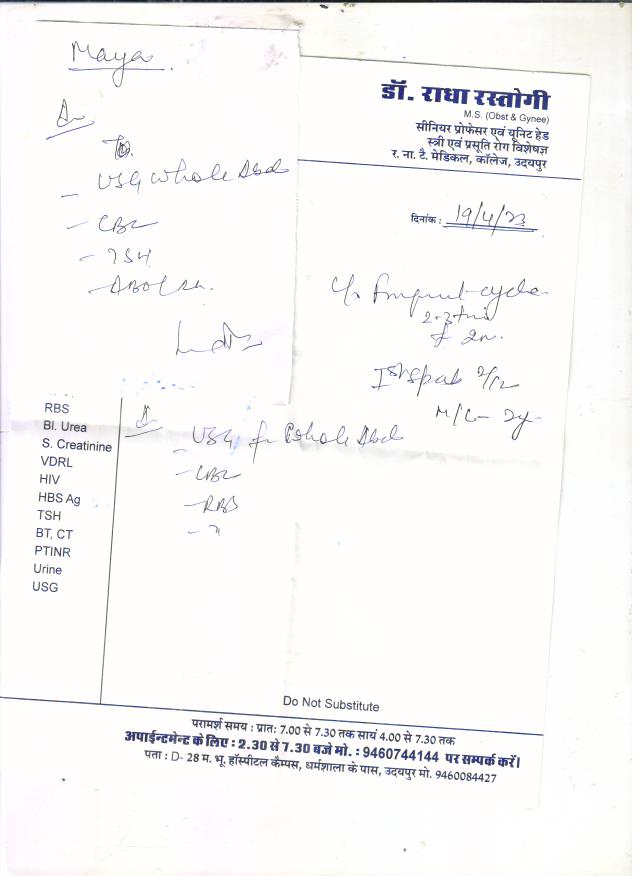 Maya
Adv
To
- USG Whole Abd
- CBC
- TSH
- ABO Rh.
डॉ. राधा रस्तोगी
M.S. (Obst & Gynee)
सीनियर प्रोफेसर एवं यूनिट हेड
स्त्री एवं प्रसूति रोग विशेषज्ञ
र. ना. टै. मेडिकल, कॉलेज, उदयपुर
दिनांक : 19/4/23
cycle
RBS
Bl. Urea
S. Creatinine
VDRL
HIV
HBS Ag
TSH
BT, CT
PTINR
Urine
USG
Adv
- USG for Whole Abd
- CBC
- RBS
Do Not Substitute
परामर्श समय : प्रातः 7.00 से 7.30 तक सायं 4.00 से 7.30 तक
अपाईन्टमेन्ट के लिए : 2.30 से 7.30 बजे मो. : 9460744144 पर सम्पर्क करें।
पता : D- 28 म. भू. हॉस्पीटल कैम्पस, धर्मशाला के पास, उदयपुर मो. 9460084427